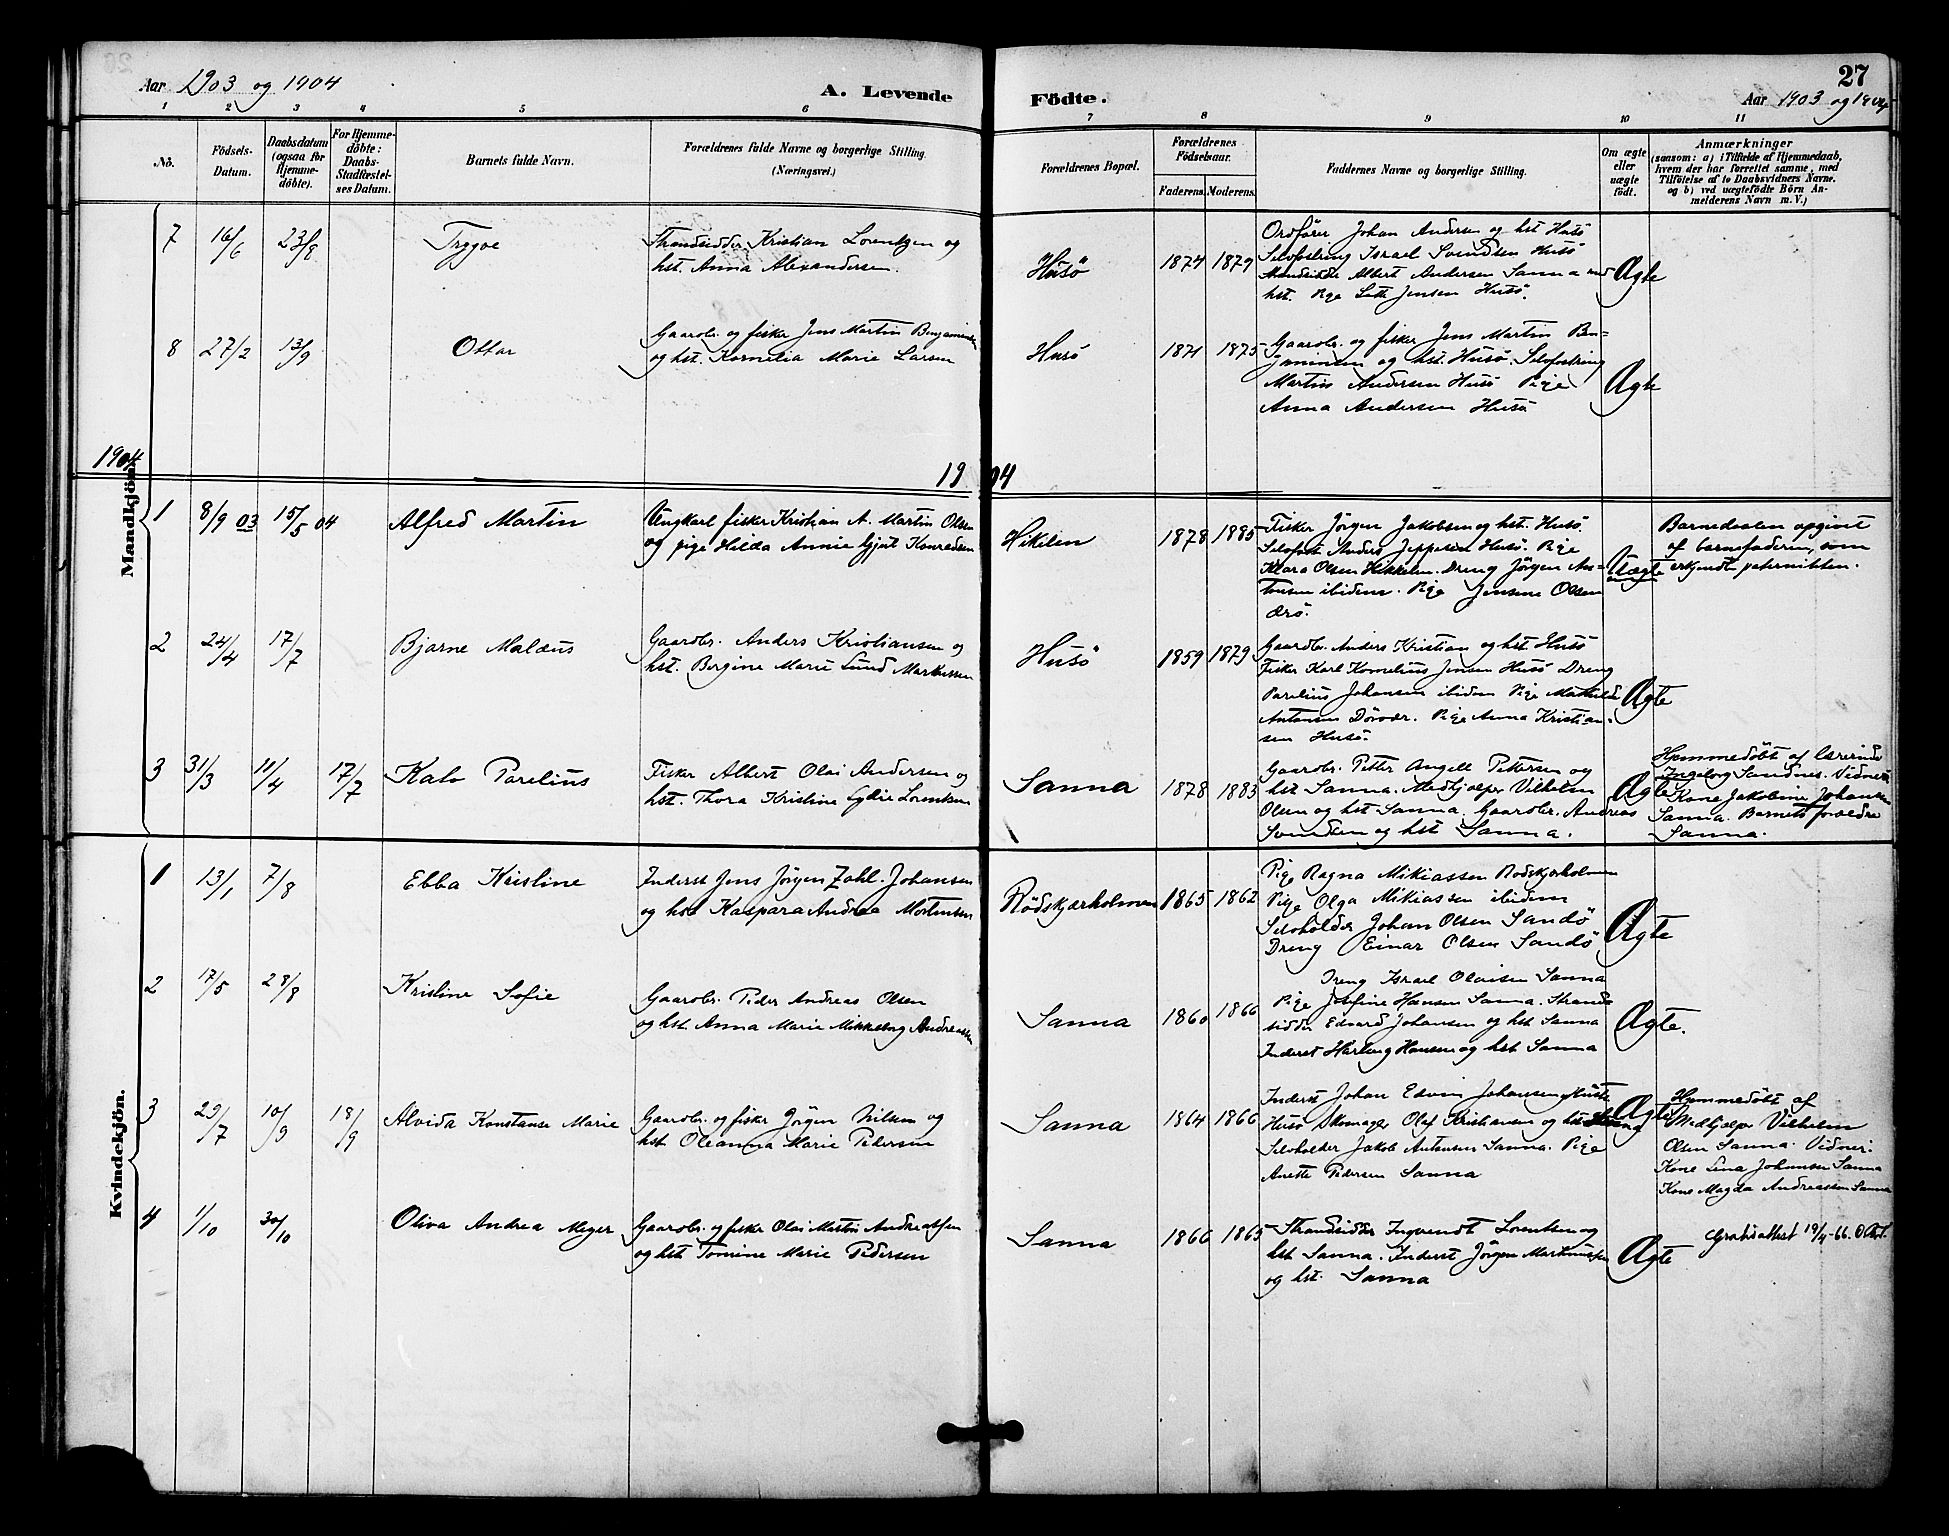 27
Aar 1903 og 1904
A. Levende
Födte.
Aar 1903 og 1904
1 2 3 4 5 6 7 8 9 10 11
No.
Födsels-
Datum.
Daabsdatum
(ogsaa for
Hjemme-
döbte).
For Hjemme-
döbte:
Daabs-
Stadfæstel-
ses Datum.
Barnets fulde Navn.
Forældrenes fulde Navne og borgerlige Stilling.
(Næringsvei.)
Forældrenes Bopæl.
Forældrenes
Födselsaar.
Faderens. Moderens.
Faddernes Navne og borgerlige Stilling.
Om ægte
eller
uægte
födt.
Anmærkninger
(saasom: a) i Tilfælde af Hjemmedaab,
hvem der har forrettet samme, med
Tilföielse af to Daabsvidners Navne.
og b) ved uægtefödte Börn An-
melderens Navn m. V.)
7 16/6 23/8 Trygve
Strandsidder Kristian Lorentzen og
hst. Anna Alexandersen.
Husö 1874 1879
Ordförer Johan Andersen og hst Husö
Selvfostring Israel Svendsen Husö
Strandsidder Albert Andersen Sanna med
hst. Pige Jensen Husö.
Ægte
8 27/2 13/9 Ottar
Gaardbr. og fisker Jens Martin Benjaminsen
og hst. Kornelia Marie Larsen
Husö 1871 1875
Gaardbr. og fisker Jens Martin Ben=
jaminsen og hst. Husö. Selvfostring
Martin Andersen Husö Pige
Anna Andersen Husö
Ægte
1904
1904
Mandkjön.
1 8/9 03 15/5 04 Alfred Martin
Ungkarl fisker Kristian A. Martin Olsen
og pige Hilda Annie Gjert Konradsen
Hikelen 1878 1885
Fisker Jörgen Jakobsen og hst. Husö
Selvfost. Anders Jeppesen Husö. Pige
Klara Olsen Hikkelen. Dreng Jörgen An=
tonsen ibidem. Pige Jensine Olsen
Ærö.
Uægte
Barnedaaben opgivet
af barnefaderen, som
erkjendte paterniteten.
2 24/4 17/7 Bjarne Malæus
Gaardbr. Anders Kristiansen og
hst. Bergine Marie Lund Markussen
Husö 1859 1879
Gaardbr. Anders Kristian og hst Husö
Fisker Karl Kornelius Jensen Husö Dreng
Parelius Johansen ibidem Pige Mathilde
Antonsen Dörvær. Pige Anna Kristian-
sen Husö.
Ægte
3 31/3 11/4 17/7 Kalv Parelius
Fisker Albert Olai Andersen og
hst. Thora Kristine Lorentsen
Sanna 1878 1883
Gaardbr. Petter Angell Pettersen og
hst Sanna. Medhjælper Vilhelm
Olsen og hst Sanna. Gaardbr. Andreas
Svendsen og hst Sanna.
Ægte
Hjemmedöbt af lærerinde
Ingeborg Sandnes. Vidner:
Kone Jakobine Johansen
Sanna. Barnets forældre
Sanna.
Kvindekjön.
1 13/1 7/8 Ebba Kristine
Inderst Jens Jörgen Zahl Johansen
og hst Kaspara Andrea Mortensen
Rödskjærholmen 1865 1862
Pige Ragna Mikiassen Rödskjærholmen
Pige Olga Mikiassen ibidem
Selvholder Johan Olsen Sandö
Dreng Einar Olsen Sandö
Ægte
2 17/5 28/8 Kristine Sofie
Gaardbr. Peder Andreas Olsen
og hst. Anna Marie Mikkelborg Andreassen
Sanna 1860 1866
Dreng Israel Olaisen Sanna
Pige Josefine Hansen Sanna. Strand-
sidder Edvard Johansen og hst Sanna
Inderst Hartvig Hansen og hst Sanna
Ægte.
3 29/7 10/9 18/9 Alvida Konstanse Marie
Gaardbr. og fisker Jörgen Nilsen og
hst. Oleanna Marie Pedersen
Sanna 1864 1866
Inderst Johan Edvin Johansen
Husö Skomager Olaf Kristiansen og hst
Selvholder Jakob Antonsen Sanna. Pige
Anette Pedersen Sanna
Ægte
Hjemmedöbt af
Medhjælper Vilhelm
Olsen Sanna. Vidner:
Kone Lina Johansen Sanna
Kone Magda Andreassen Sanna
4 1/10 30/10 Oliva Andrea Meyer
Gaardbr. og fisker Olai Martin Andreassen
og hst Tomine Marie Pedersen
Sanna 1866 1865
Strandsidder Ingvardt Lorentsen og
hst Sanna. Inderst Jörgen Martinussen
og hst. Sanna
Ægte
Gratisattest 19/4-66.